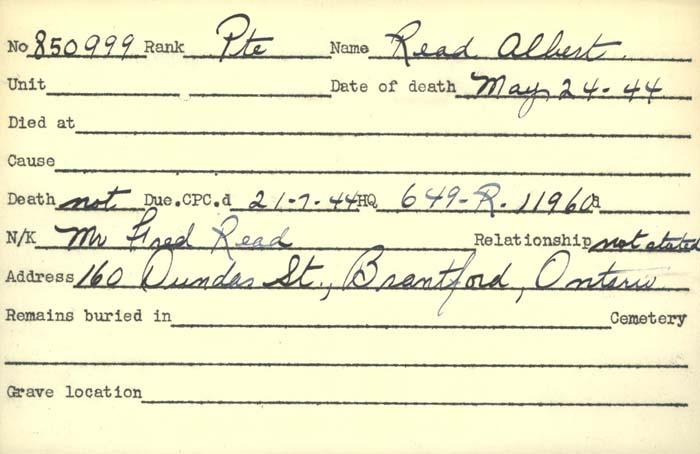 No 850999 Rank Pte Name Read Albert.
Unit Date of death May 24-44
Died at
Cause
Death not Due.CPC.d 21-7-44 HQ 649-R-11960 d
N/K Mr Fred Read Relationship not stated
Address 160 Dundas St., Brantford, Ontario
Remains buried in Cemetery
Grave location